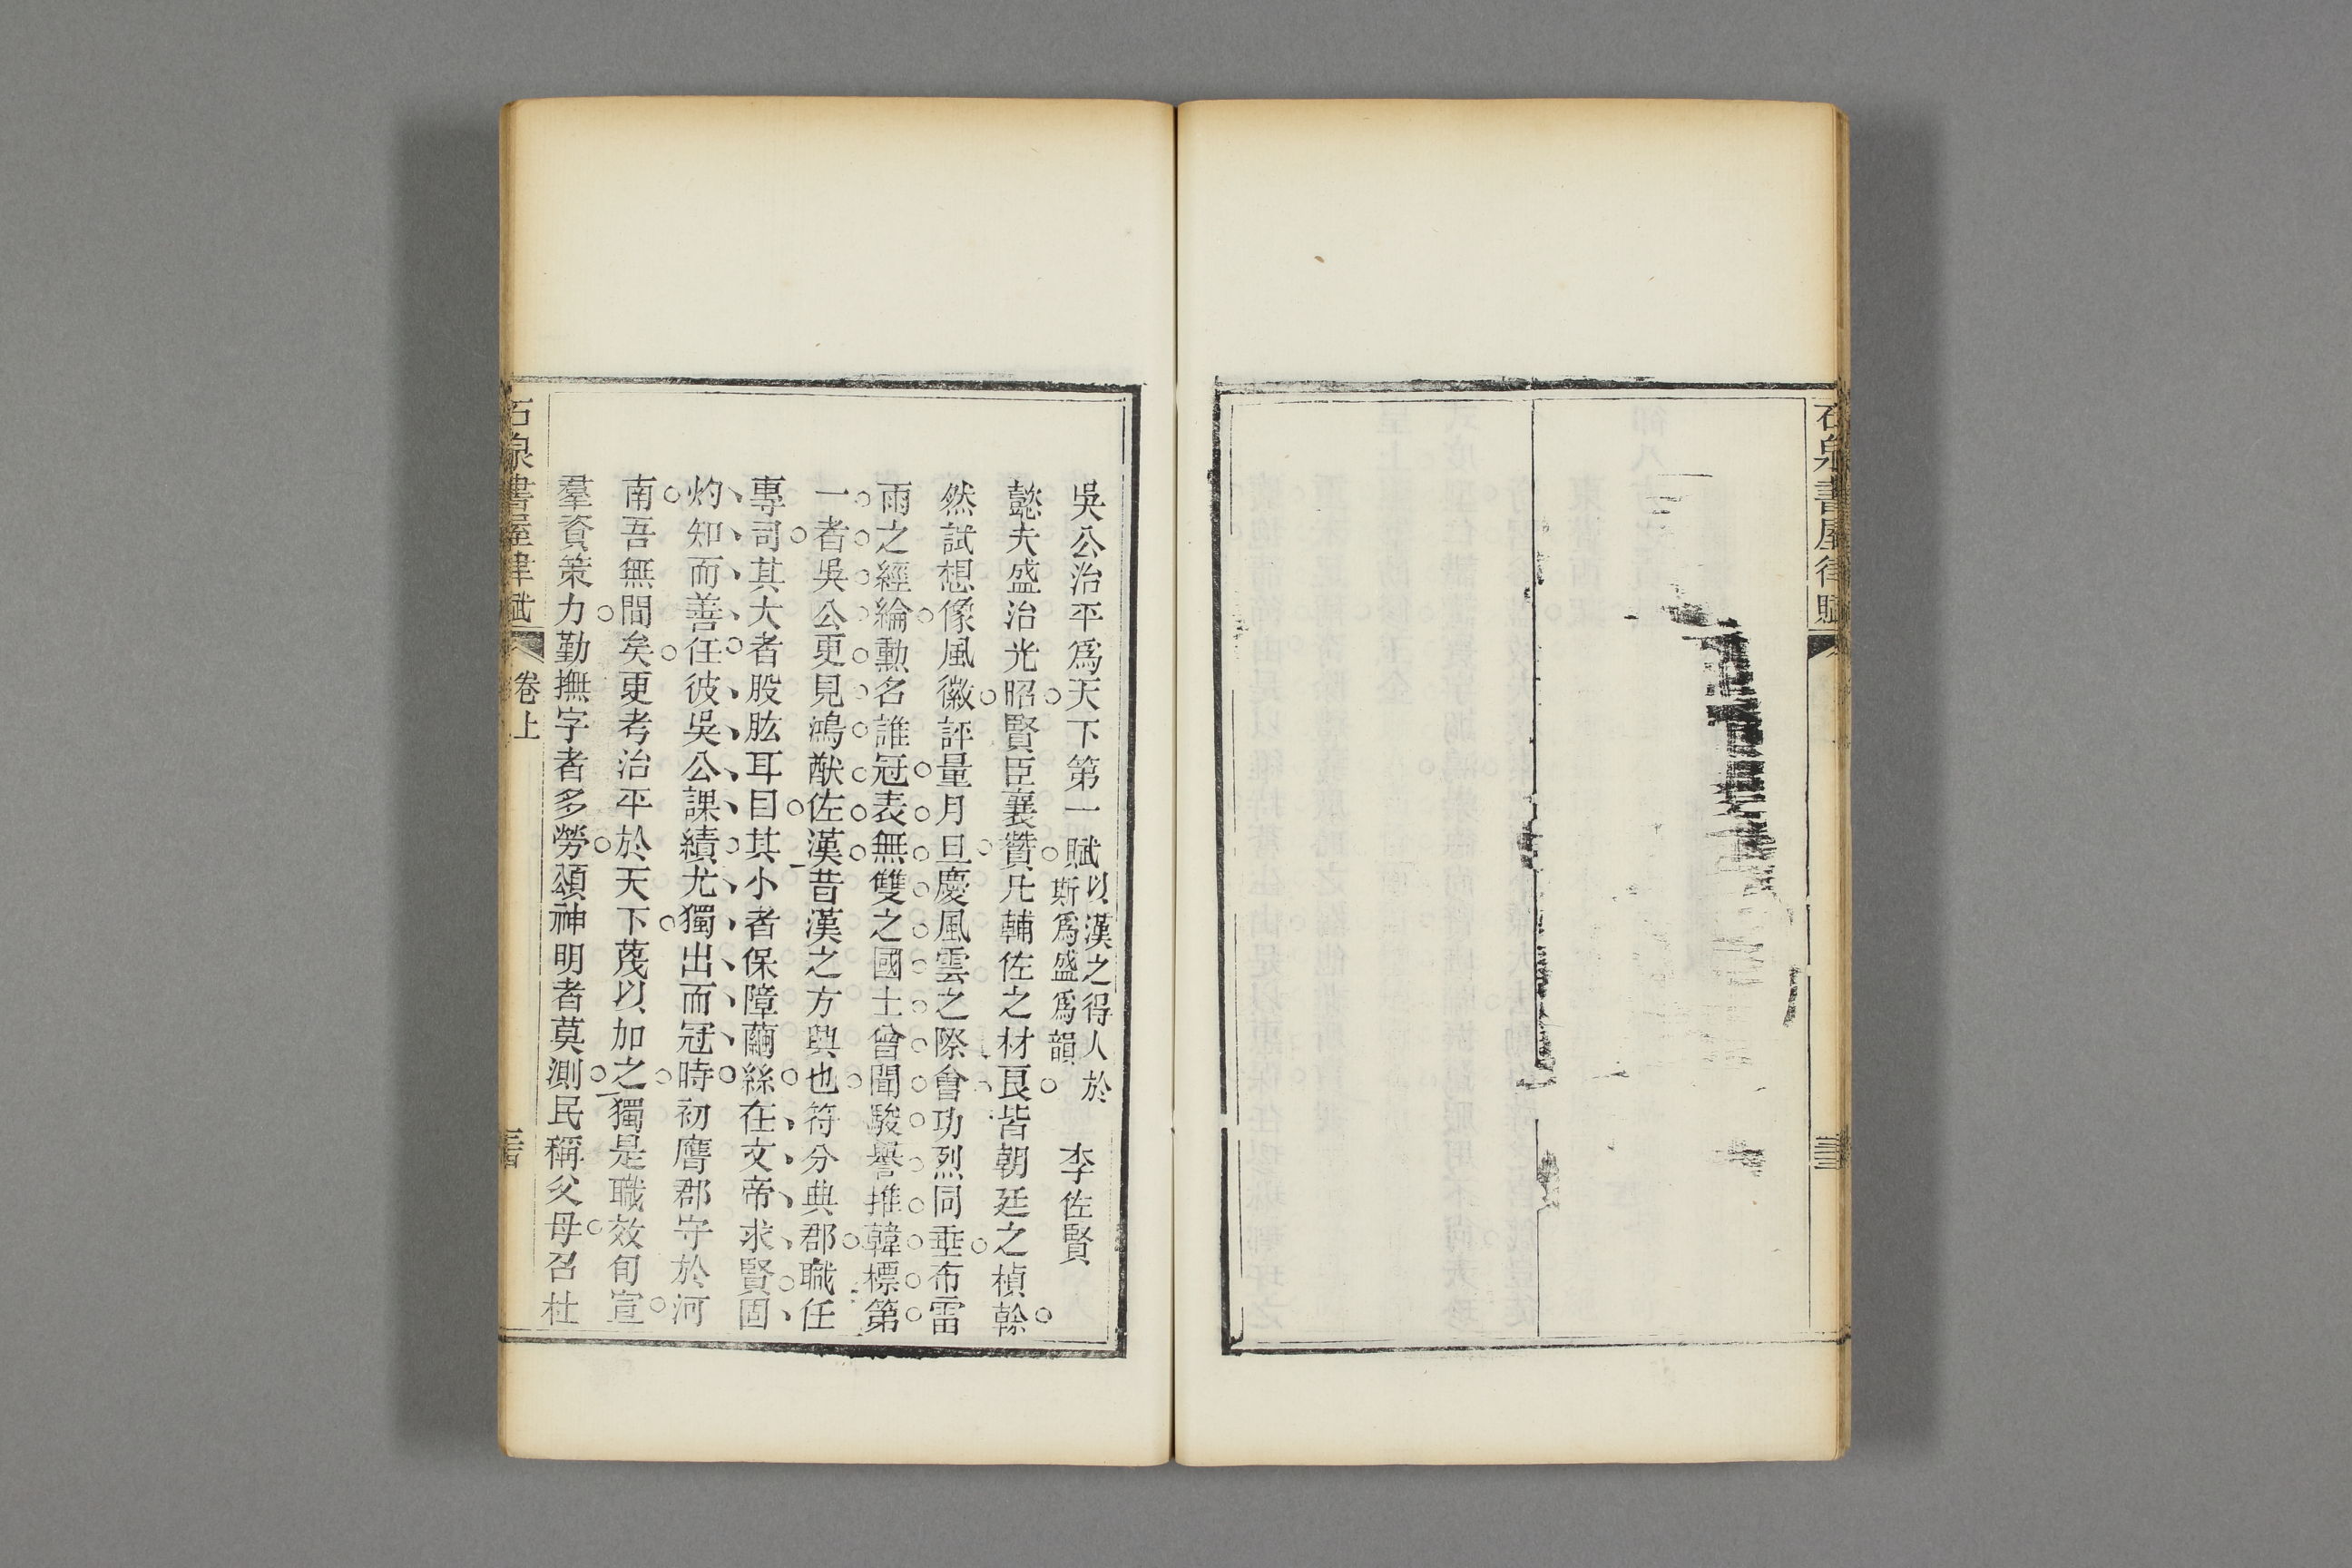 石泉書屋律賦
吳公治平爲天下第一賦以漢之得人於
斯爲盛爲韻
李佐賢
懿夫盛治光昭賢臣襄贊凡輔佐之材良皆朝廷之楨榦
然試想像風徽評量月旦慶風雲之際會功烈同垂布雷
雨之經綸勳名誰冠表無雙之國士曾聞駿譽推韓標第
一者吳公更見鴻猷佐漢昔漢之方興也符分典郡職任
專司其大者股肱耳目其小者保障繭絲在文帝求賢固
灼知而善任彼吳公課績尤獨出而冠時初膺郡守於河
南吾無間矣更考治平於天下蔑以加之獨是職效旬宣
羣資策力勤撫字者多勞頌神明者莫測民稱父母召杜
石泉書屋律賦
卷上